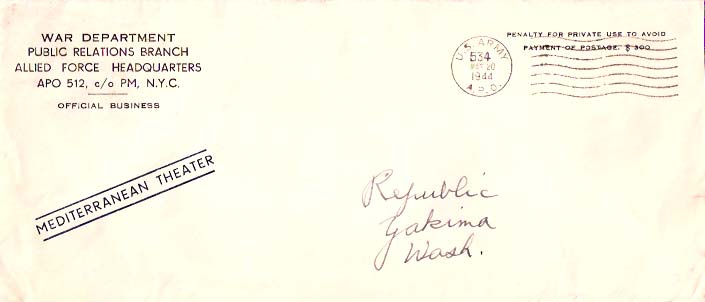 WAR DEPARTMENT
PUBLIC RELATIONS BRANCH
ALLIED FORCE HEADQUARTERS
APO 512, c/o PM, N.Y.C.
OFFICIAL BUSINESS
U.S. ARMY
534
20
1944
A.P.O.
PENALTY FOR PRIVATE USE TO AVOID
PAYMENT OF POSTAGE. $ 300
MEDITERRANEAN THEATER
Republic
Yakima
Wash.